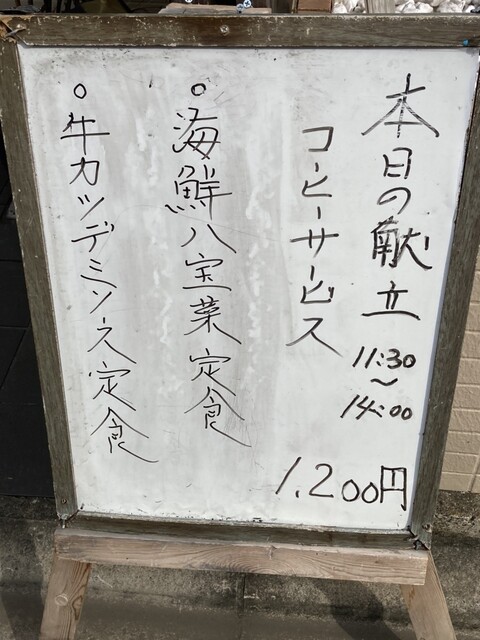 本日の献立
11:30
〜
14:00
コーヒーサービス
○海鮮八宝菜定食
○牛カツデミソース定食
1,200円